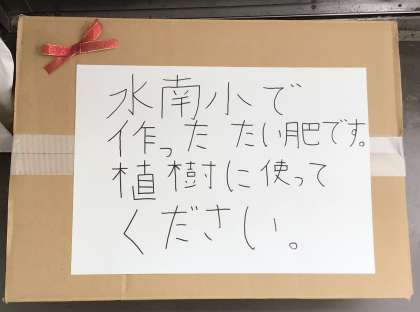 水南小で
作った たい肥です。
植樹に使って
ください。